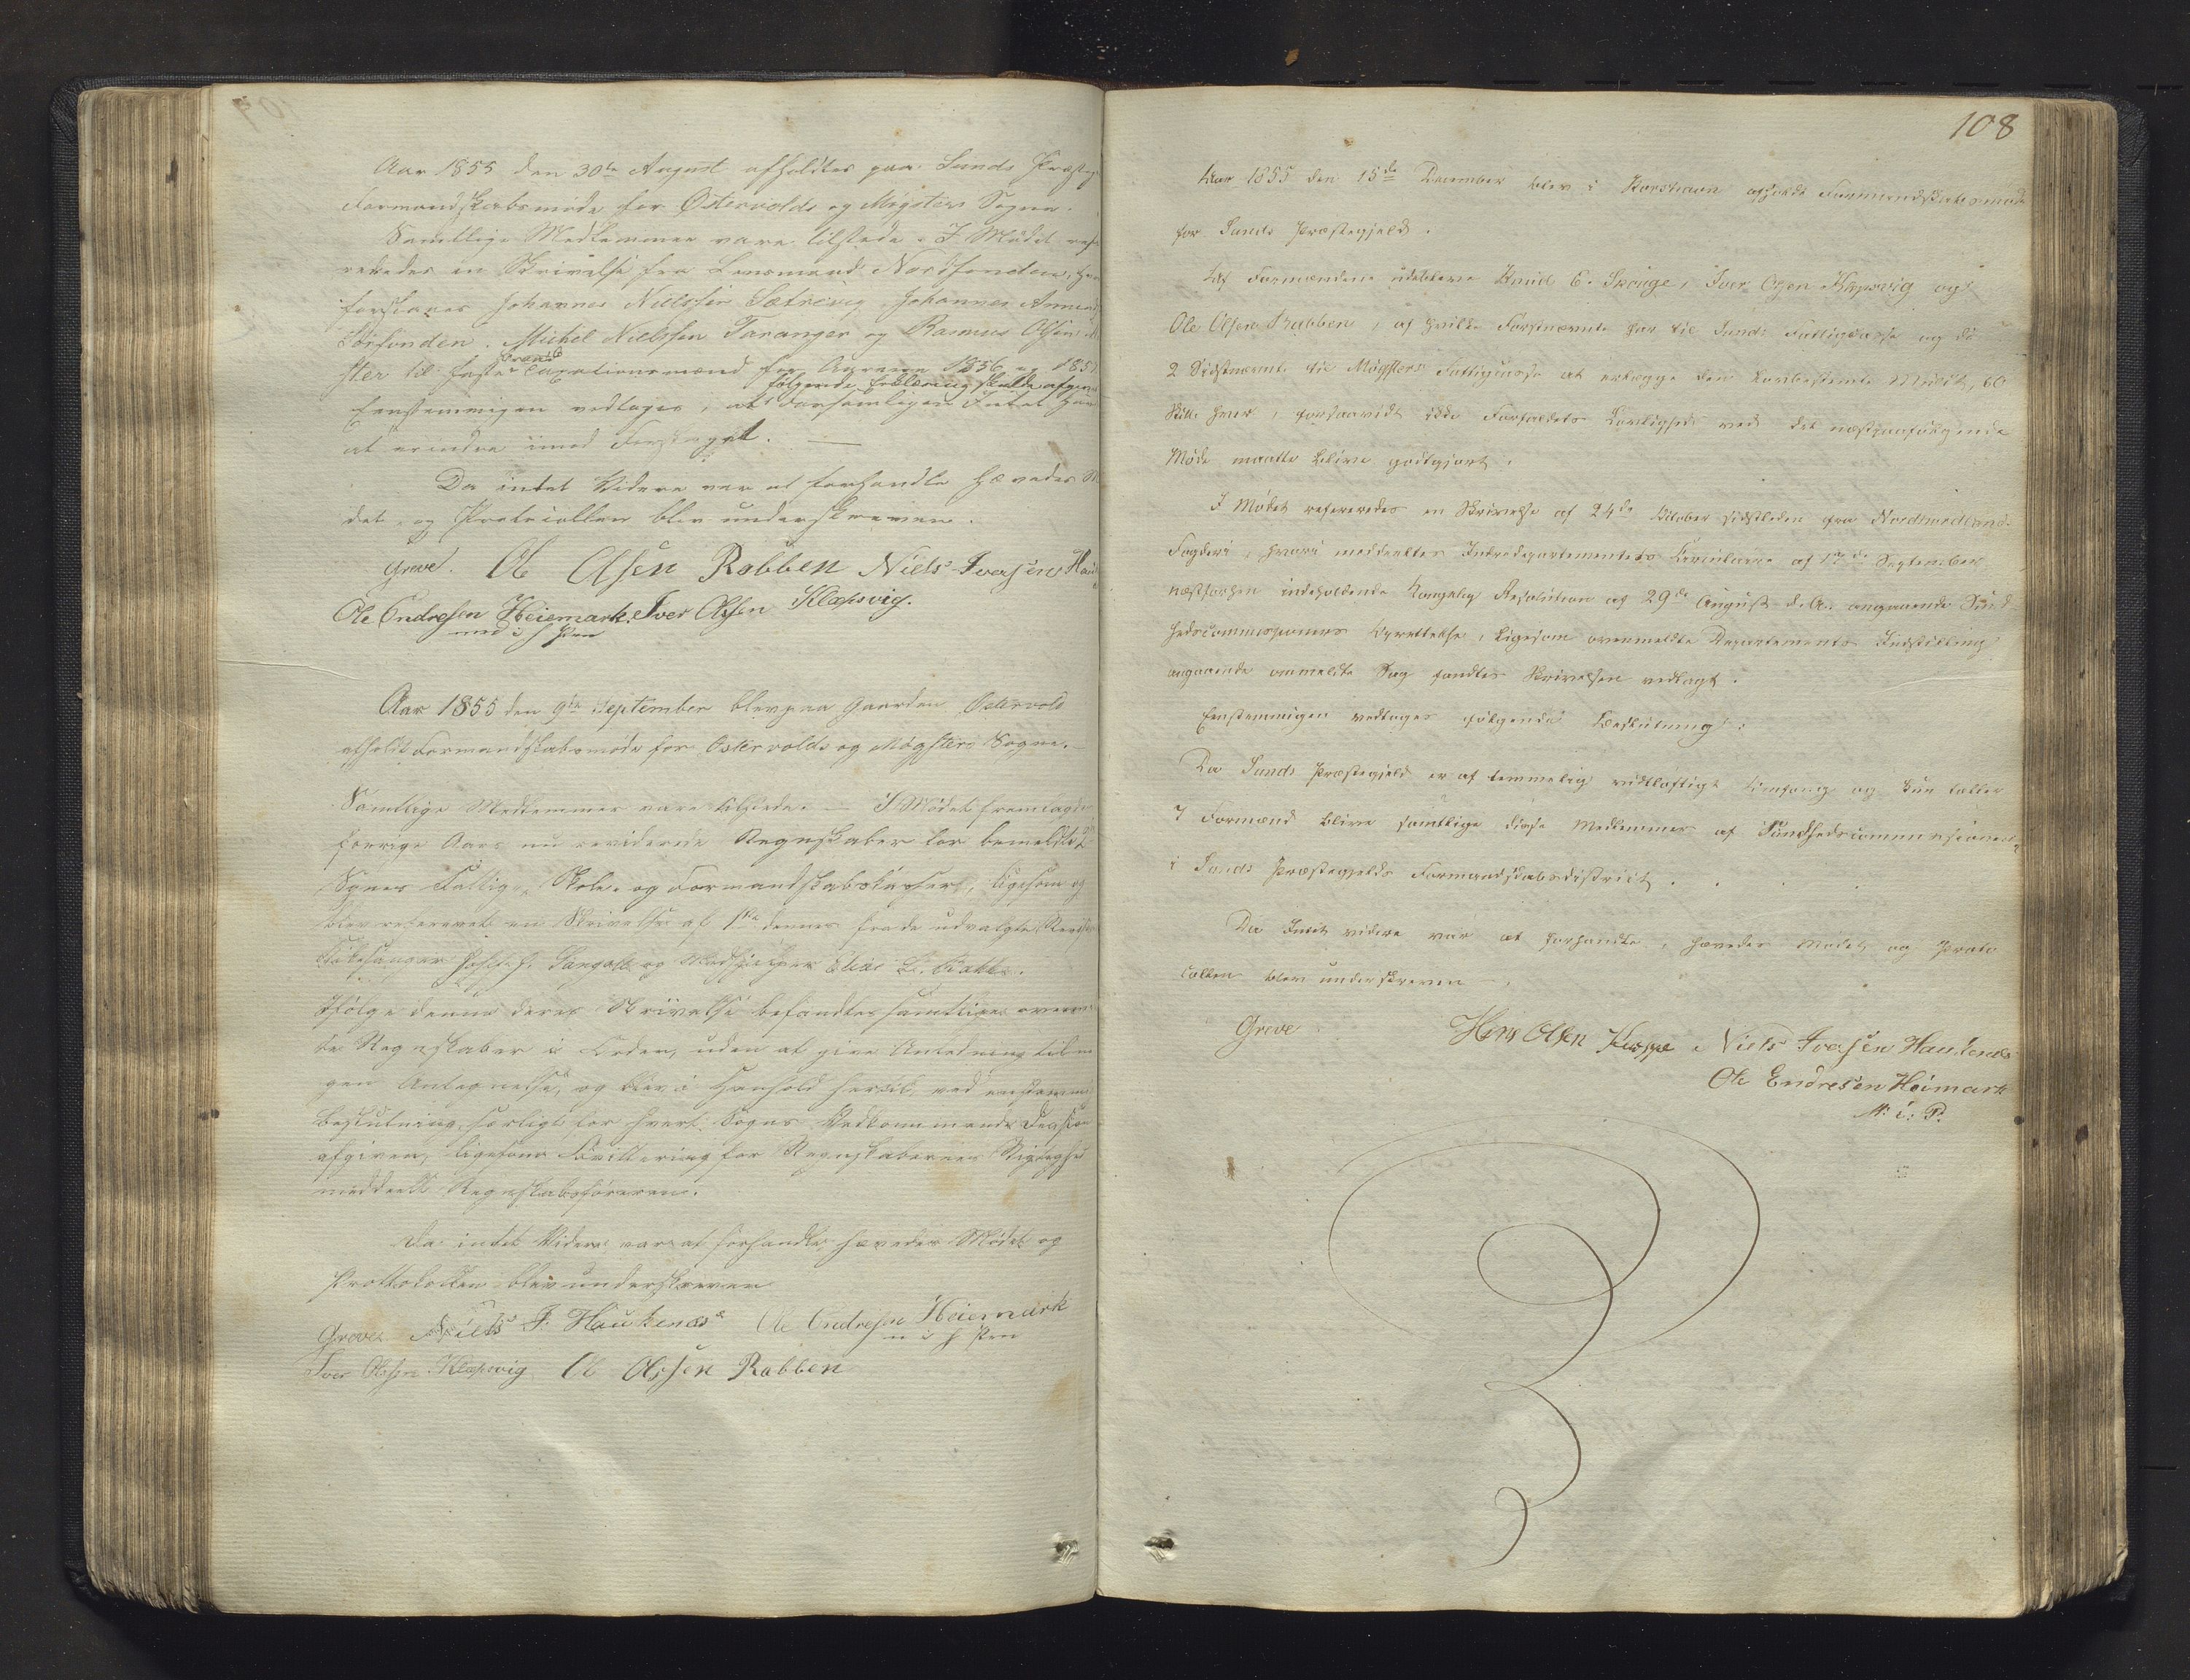 Aar 1855 den 30te August afholdtes paa Sunds Præste
Formandskabsmøde for Østervolds og Møgsters Sogne.
Samtlige Medlemmer vare tilstede. I Mødet refe
reredes en Skrivelse fra Lensmand Nordfonden, hvor
foreslaaes Johannes Nielssen Sætrevig, Johannes
Sørfonden, Michel Nielssen Taranger og Rasmus Olsen
ster til faste Brand Taxationsmænd for Aarene 1856 og 185
følgende Erklæring skulde afgives
Eenstemmigen vedtoges, at Forsamlingen Intet har
at erindre imod Forslaget.
Da intet Videre var at forhandle hævedes Mø
det, og Protocollen blev underskreven.
Greve. Ole Olsen Rabben Niels Iversen Hauk
Ole Endresen Heiemark. Iver Olsen Klæpsvig.
med i h Pen
Aar 1855 den 9de September blev paa Gaarden Østervold
afholdt Formandskabsmøde for Østervolds og Møgsters Sogne.
Samtlige Medlemmer vare tilstede. I Mødet fremlagdes
forrige Aars nu reviderede Regnskaber for bemeldte 2de
Sognes Fattig-, Skole- og Formandskabskasser, ligesom og
blev refereret en Skrivelse af 1ste dennes fra de udvalgte
Kirkesanger og Medhjælper Elias
Ifølge denne deres Skrivelse befandtes samtlige ovennævn
te Regnskaber i Orden, uden at give Anledning til no
gen Antegnelse, og blev i Henhold hertil, ved eenstemmig
Beslutning, særligt for hvert Sogns Vedkommende Decision
afgiven, ligesom Qvittering for Regnskabernes Rigtighed
meddeelt Regnskabsføreren.
Da intet Videre var at forhandle hævedes Mødet og
Prottokollen blev underskreven
Greve Niels I. Haukenæs Ole Endresen Heiemark
m i h Pen
Iver Olsen Klæpsvig Ole Olssen Rabben
108
Aar 1855 den 15de December blev i Korshavn afholdt Formandskabsmøde
for Sunds Præstegjeld.
Af Formændene udebleve Knud E. Skoge, Iver Olsen Klepsvig og
Ole Olsen Rabben, af hvilke Førstnævnte har til Sunds Fattigcasse og de
2 Sidstnævnte til Møgsters Fattigcasse at erlægge den lovbestemte Mulct, 60
Skill. hver, forsaavidt ikke Forfaldets Lovlighed ved det næstpaafølgende
Møde maatte blive godtgjort.
I Mødet refereredes en Skrivelse af 24de October sidstleden fra Nordhordlands
Fogderi, hvori meddeeltes Indredepartementets Circulaire af 17de September
næstforhen indeholdende Kongelig Resolution af 29de August d. A. angaaende Sund-
hedscommissioners Oprettelse, ligesom ovenmeldte Departements Indstilling
angaaende ommeldte Sag fandtes Skrivelsen vedlagt.
Eenstemmigen vedtoges følgende Beslutning:
Da Sunds Præstegjeld er af temmelig vidtløftigt Omfang og kun tæller
7 Formænd blive samtlige disse Medlemmer af Sundhedscommissionen
i Sunds Præstegjelds Formandskabsdistrict.
Da Intet videre var at forhandle, hævedes Mødet og Proto
collen blev underskreven.
Greve Hans Olsen Niels Iversen Haukenæs
Ole Endresen Heimark
M: i: P: